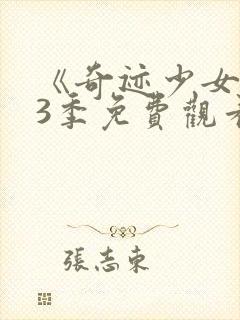 《奇迹少女
3季免費觀看
張志東